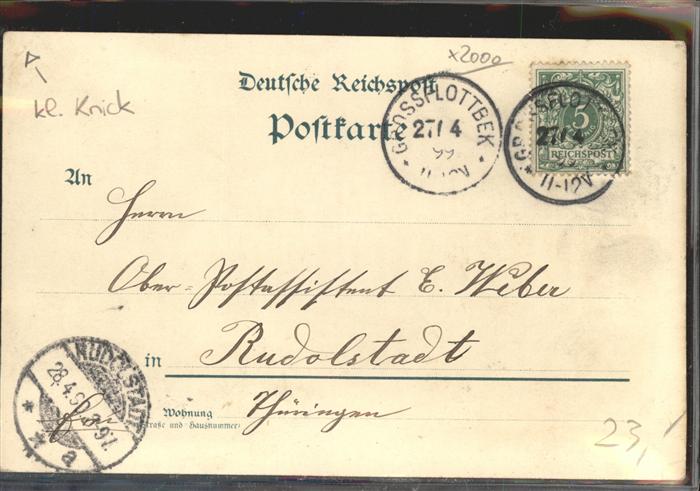 x2000
kl. Knick
Deutsche Reichspost
Postkarte
GROSSFLOTTBEK
27/4
99
11-12V
5
REICHSPOST
GROSSFLOTTBEK
27/4
11-12V
An
Herrn
Ober-Postassistent E. Weber
in Rudolstadt
Wohnung Thüringen
(Straße und Hausnummer)
RUDOLSTADT
28.4.99
a
23,-